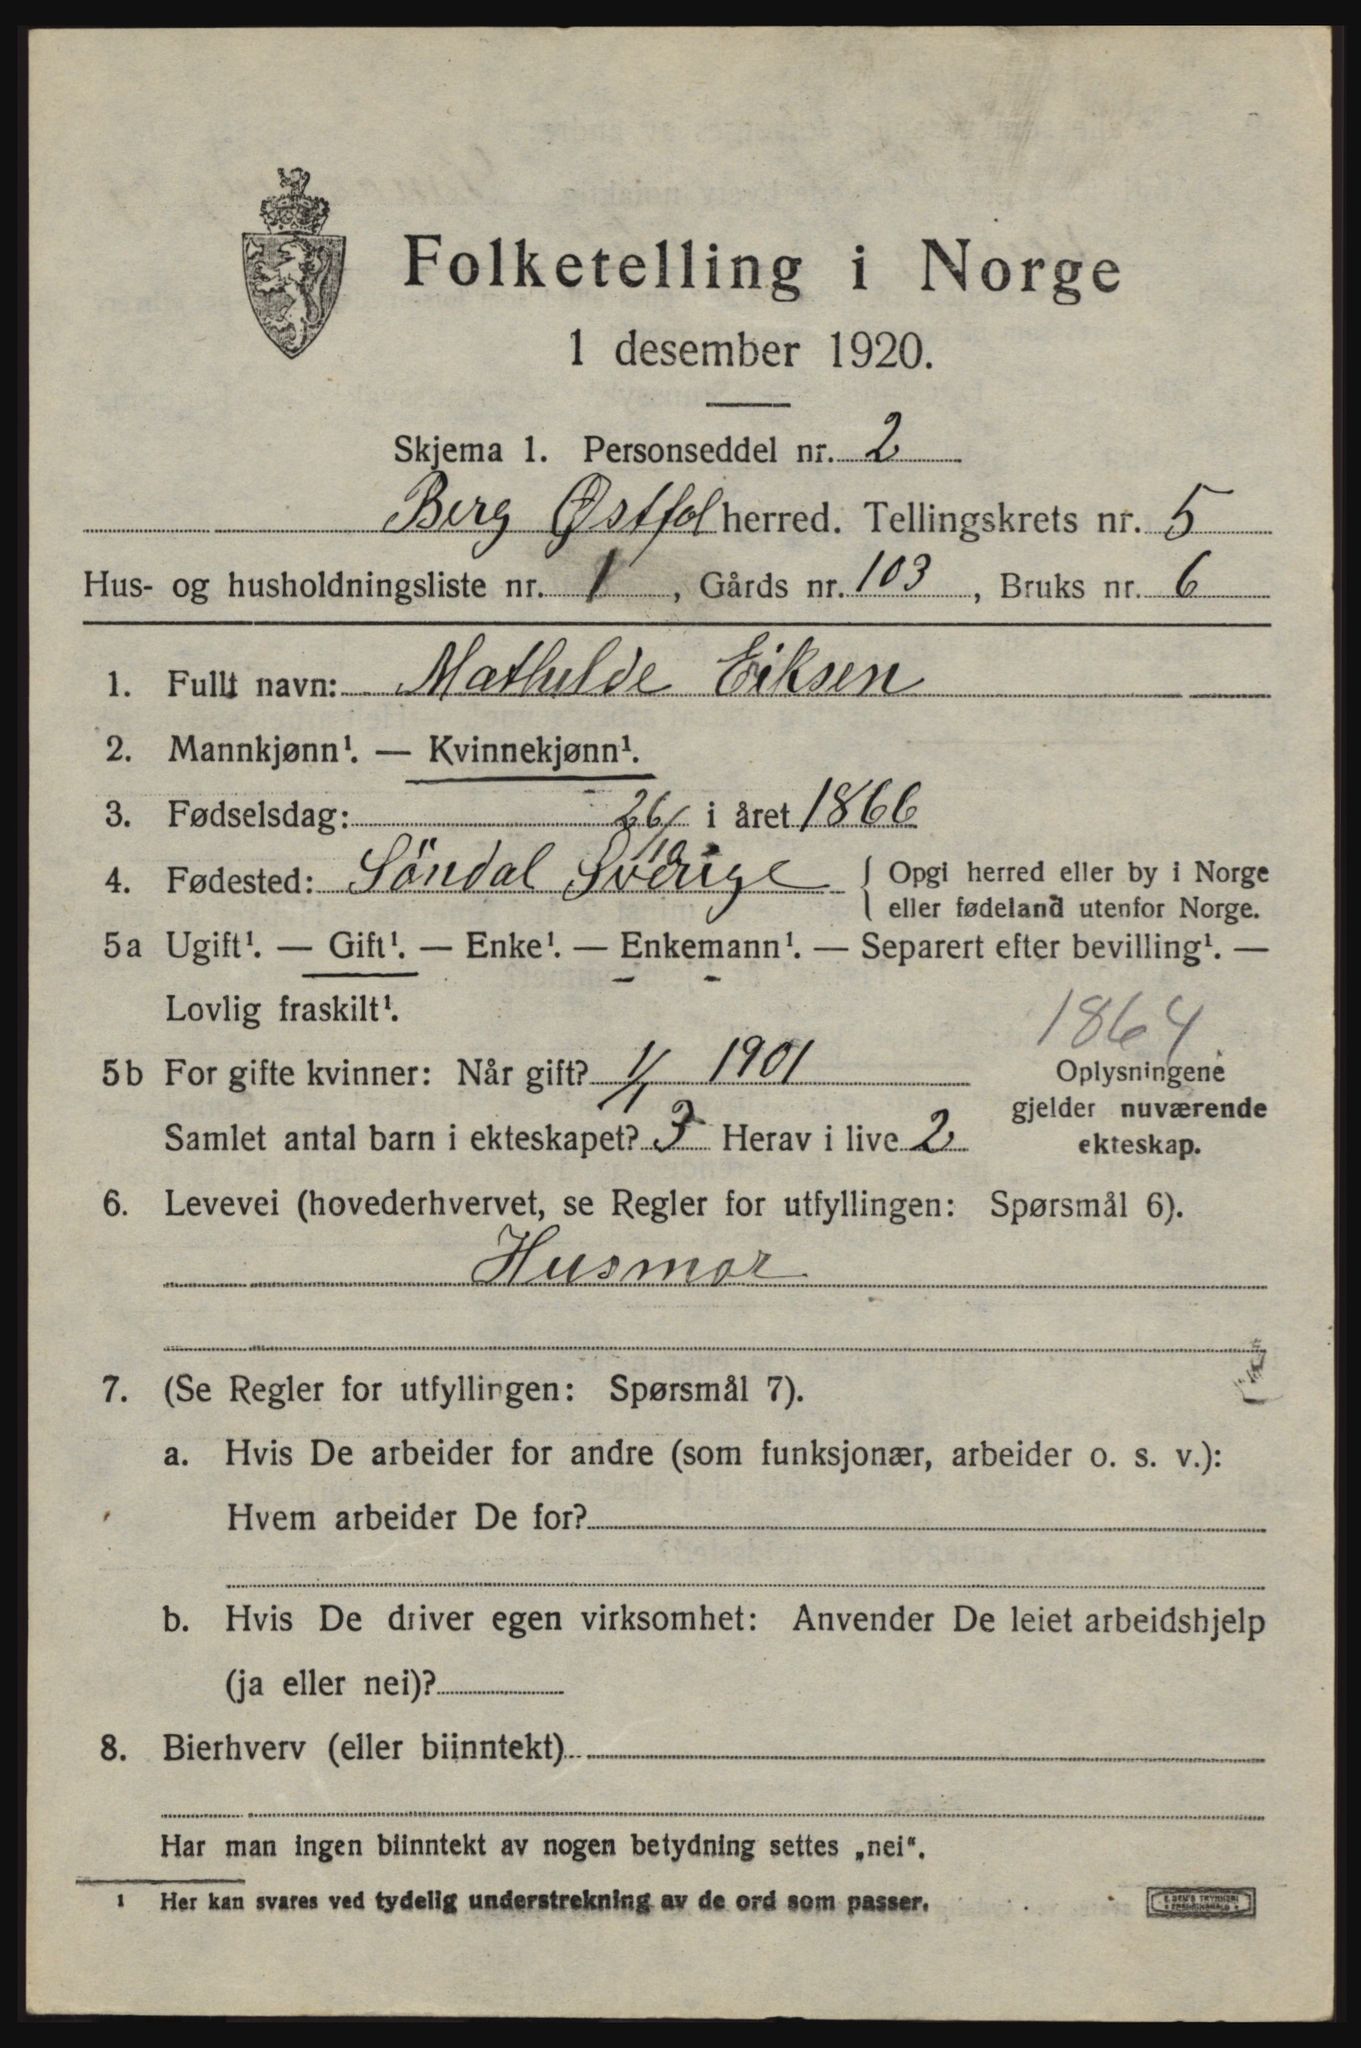 Folketelling i Norge
1 desember 1920.
Skjema 1. Personseddel nr. 2
Berg Østfol herred. Tellingskrets nr. 5
Hus- og husholdningsliste nr. 1, Gårds nr. 103, Bruks nr. 6
1. Fullt navn: Mathilde Eiksen
2. Mannkjønn¹. — Kvinnekjønn¹.
3. Fødselsdag: 26/10 i året 1866
4. Fødested: Söndal Sverige { Opgi herred eller by i Norge
eller fødeland utenfor Norge.
5a Ugift¹. — Gift¹. — Enke¹. — Enkemann¹. — Separert efter bevilling¹. —
Lovlig fraskilt¹.
1864
5b For gifte kvinner: Når gift? 1/1 1901
Oplysningene
gjelder nuværende
ekteskap.
Samlet antal barn i ekteskapet? 3 Herav i live 2
6. Levevei (hovederhvervet, se Regler for utfyllingen: Spørsmål 6).
Husmor
7. (Se Regler for utfyllingen: Spørsmål 7).
a. Hvis De arbeider for andre (som funksjonær, arbeider o. s. v.):
Hvem arbeider De for?
b. Hvis De driver egen virksomhet: Anvender De leiet arbeidshjelp
(ja eller nei)?
8. Bierhverv (eller biinntekt)
Har man ingen biinntekt av nogen betydning settes „nei“.
¹ Her kan svares ved tydelig understrekning av de ord som passer.